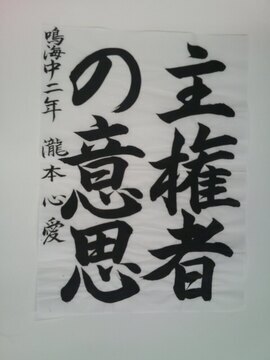 主権者
の意思
鳴海中二年 瀧本心愛